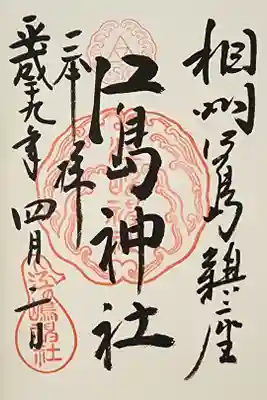 相州江島鎮座
江島神社
奉拝
平成十九年四月二日
江嶋神社